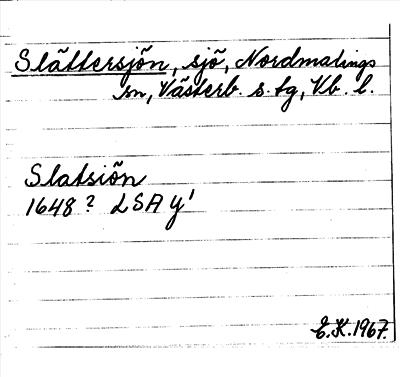 Slättersjön, sjö, Nordmalings
sn, Västerb. s. tg, Vb. l.
Slatsiön
1648? LSA y¹
E.K. 1967.